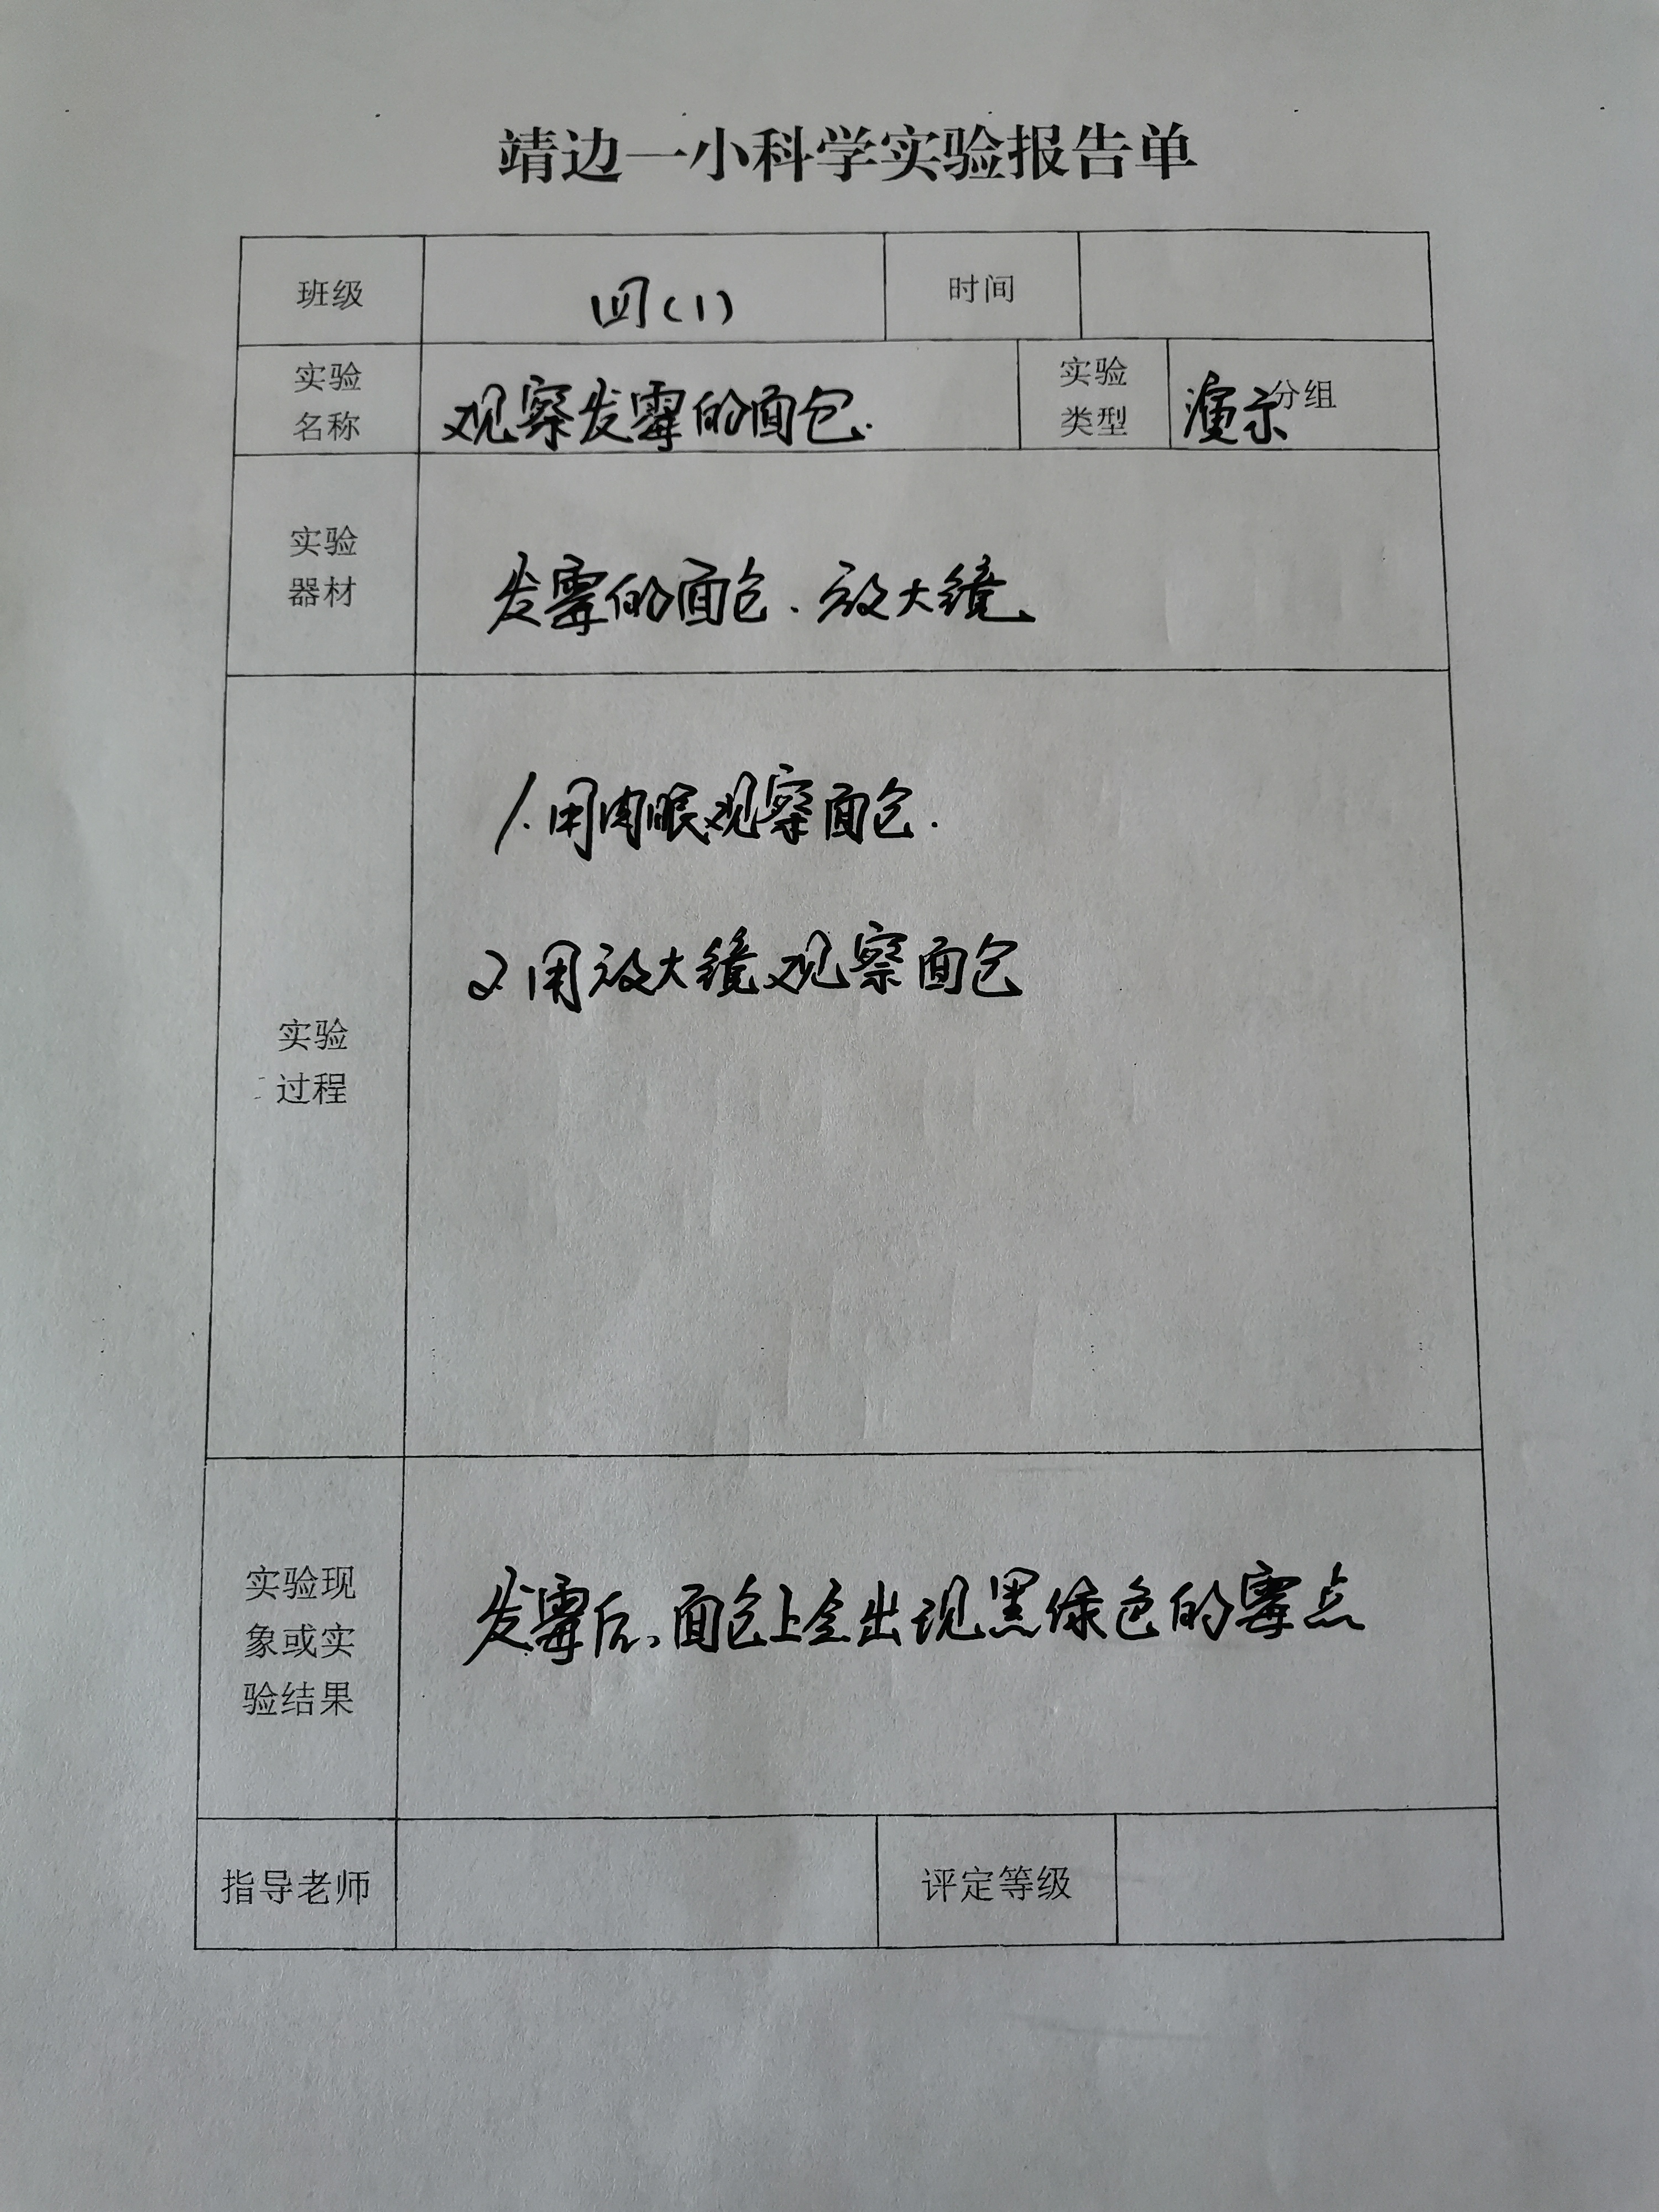 靖边一小科学实验报告单
班级 四(1) 时间
实验名称 观察发霉的面包. 实验类型 演示 分组
实验器材 发霉的面包、放大镜
实验过程
1.用肉眼观察面包.
2.用放大镜观察面包
实验现象或实验结果 发霉后、面包上会出现黑绿色的霉点
指导老师 评定等级